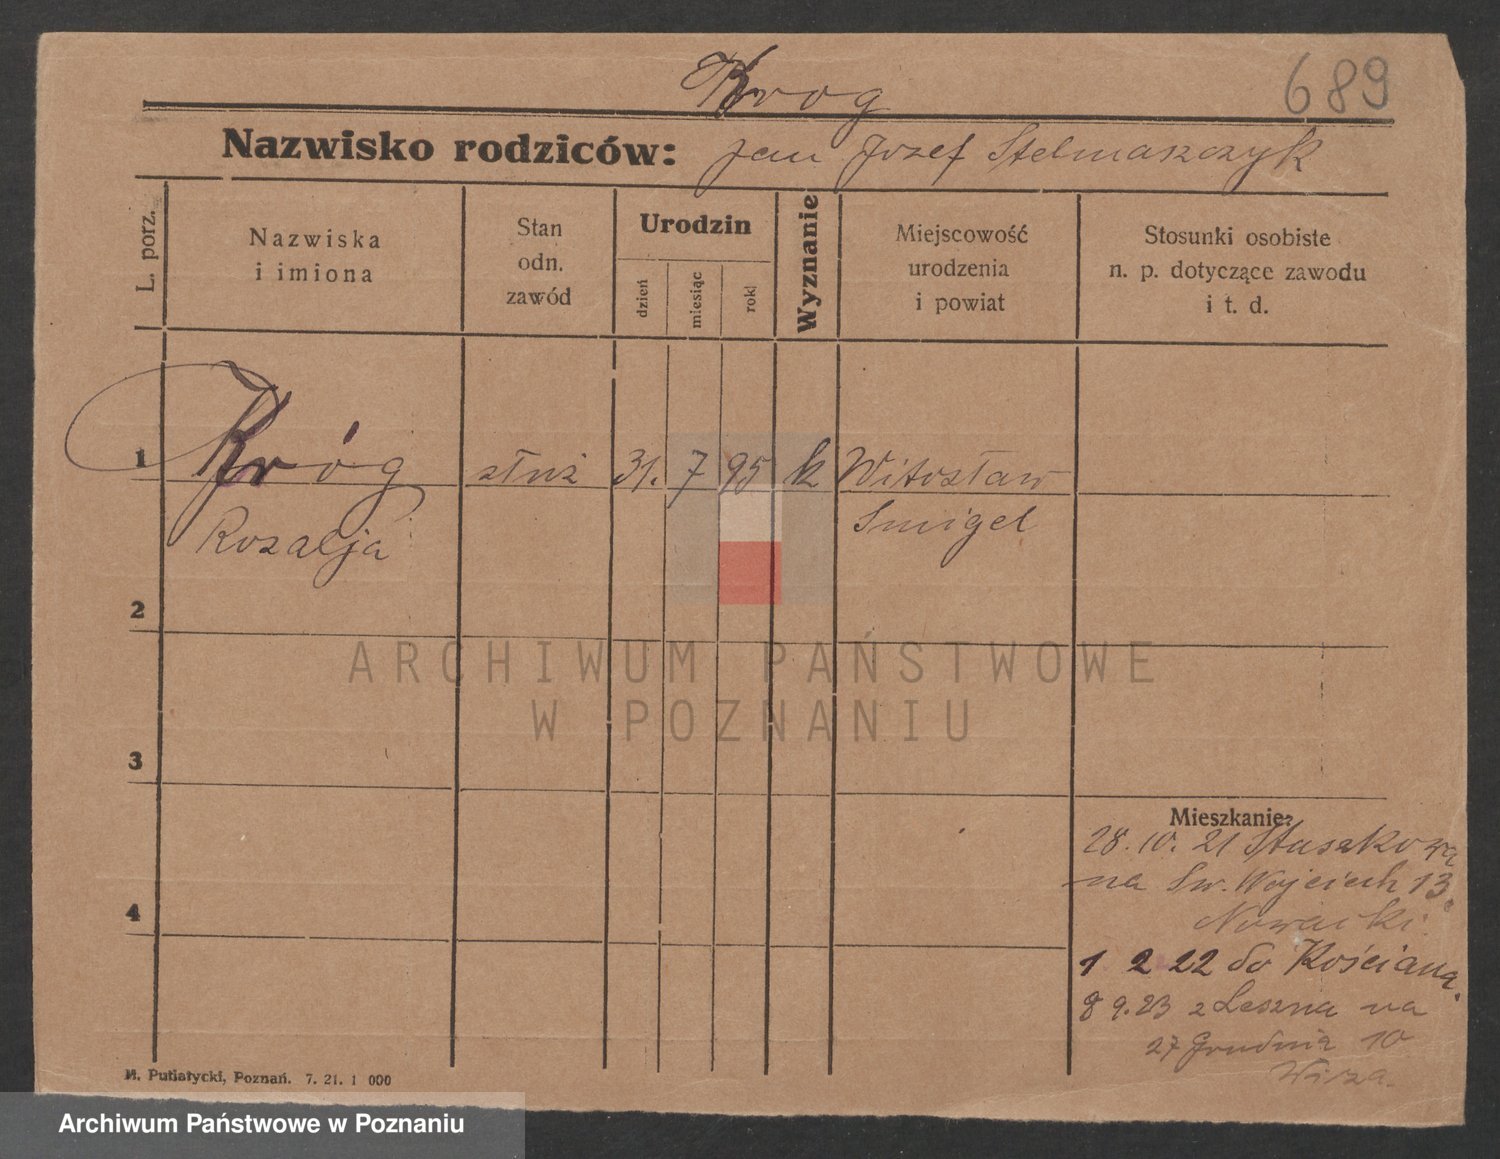 Krog
689
Nazwisko rodziców: Jan Jozef Stelmaszczyk
L. porz.
Nazwiska
i imiona
Stan
odn.
zawód
Urodzin
dzień
miesiąc
rok
Wyznanie
Miejscowość
urodzenia
i powiat
Stosunki osobiste
n. p. dotyczące zawodu
i t. d.
1 Króg służ 31. 7 95 k Witosław
Rozalja Smigel
2
3
4
Mieszkanie:
28. 10. 21 Staszkowa
na Św. Wojciech 13.
Nowacki.
1 2 22 do Kościana.
8 9. 23 z Leszna na
27 Grudnia 10
M. Putiatycki, Poznań. 7. 21. 1 000
ARCHIWUM PAŃSTWOWE
W POZNANIU
Archiwum Państwowe w Poznaniu